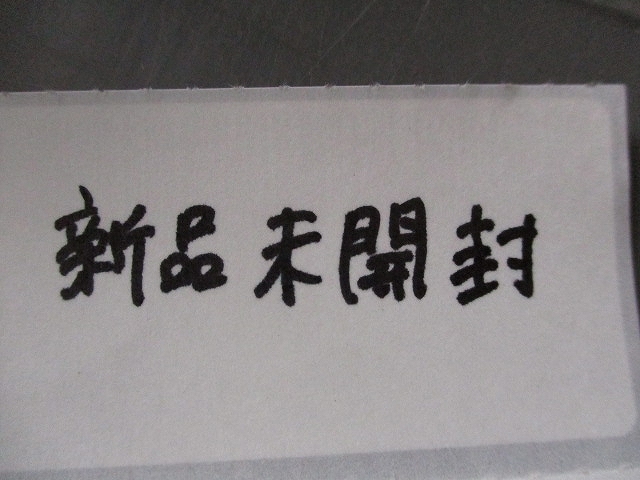 新品未開封